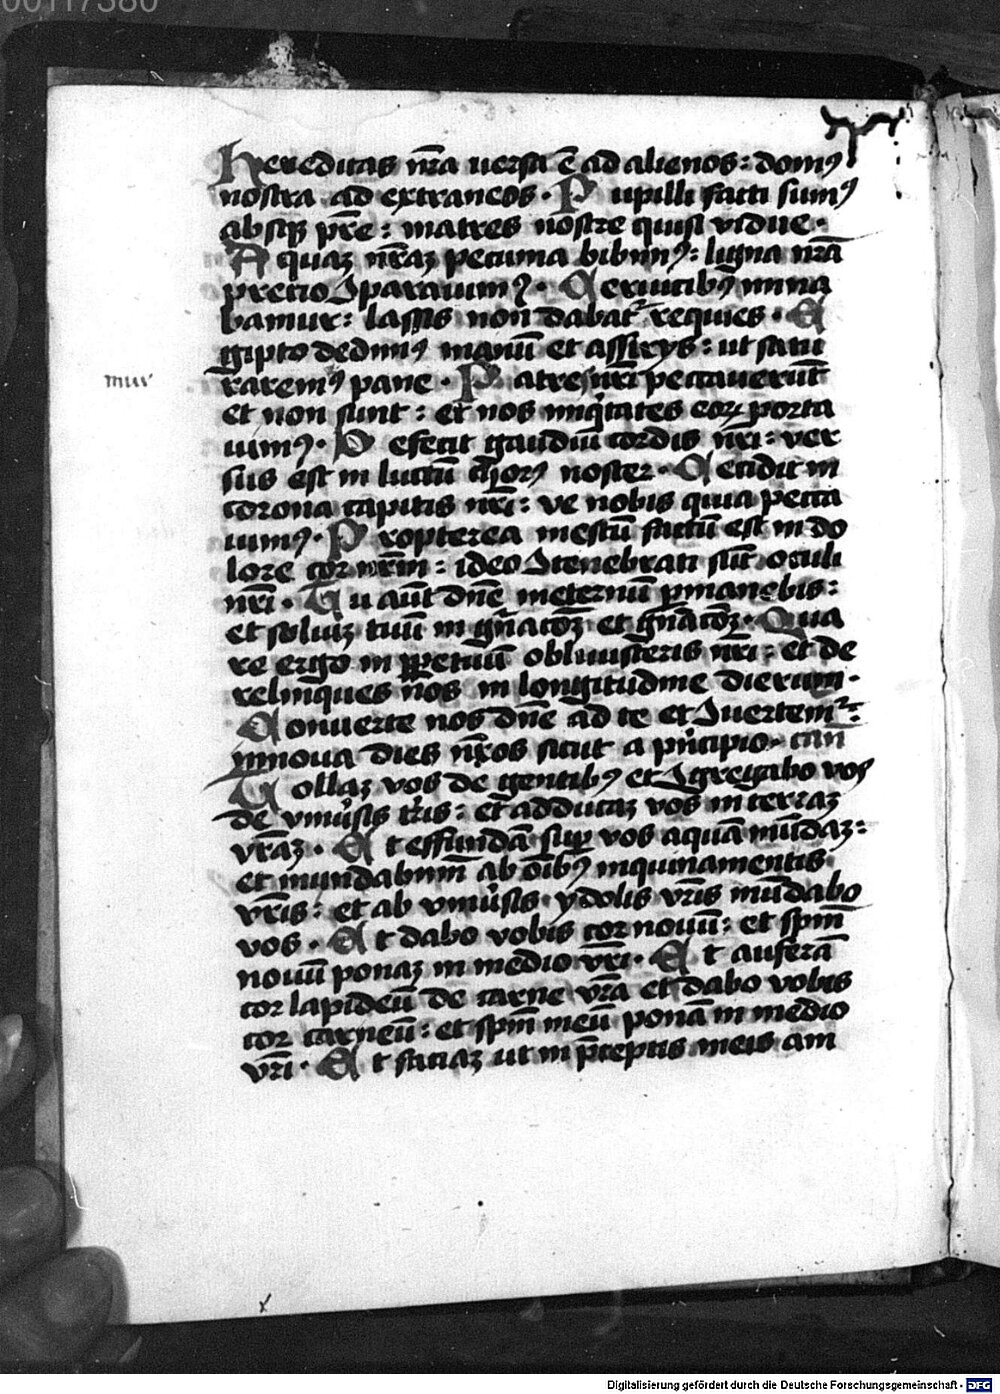 00117380
Hereditas nr̄a versa ē ad alienos: domꝰ
nostra ad extraneos. Pupilli facti sumꝰ
absqꝫ pr̄e: matres nostre quasi vidue.
Aquaꝫ nr̄aꝫ pecunia bibimꝰ: ligna nr̄a
precio ꝯparauimꝰ. Ceruicibꝰ mina
bamur: lassis non dabat᷑ requies. E
gipto dedimꝰ manū et assirijs: ut satu
mur
raremꝰ pane. Patres nr̄i peccauerūt
et non sunt: et nos iniq̇tates eoꝝ porta
uimꝰ. Defecit gaudiū cordis nr̄i: ver
sus est in luctū chorꝰ noster. Cecidit
corona capitis nr̄i: ve nobis quia pecca
uimꝰ. Propterea mestū factū est in do
lore cor nr̄m: ideo ꝯtenebrati sūt oculi
nr̄i. Tu aūt dn̄e ineternū ꝑmanebis:
et soliuꝫ tuū in gn̄acōꝫ et gn̄acōꝫ. Qua
re ergo in ꝑpetuū obliuisceris nr̄i: et de
relinques nos in longitudine dierum.
Conuerte nos dn̄e ad te et ꝯuertemᷣ:
innoua dies nr̄os sicut a pͥncipio. can̄
Tollaꝫ vos de gentibꝰ et ꝯgregabo vos
de vniuͥsis tr̄is: et adducaꝫ vos in terraꝫ
vr̄aꝫ. Et effundā suꝑ vos aquā mūdaꝫ:
et mundabimī ab oībꝰ inquinamentis
vr̄is: et ab vniuͥsis ydolis vr̄is mūdabo
vos. Et dabo vobis cor nouū: et spm̄
nouū ponaꝫ in medio vr̄i. Et auferā
cor lapideū de carne vr̄a et dabo vobis
cor carneū: et spm̄ meū ponā in medio
vr̄i. Et faciaꝫ ut in p̄ceptis meis am
Digitalisierung gefördert durch die Deutsche Forschungsgemeinschaft - DFG